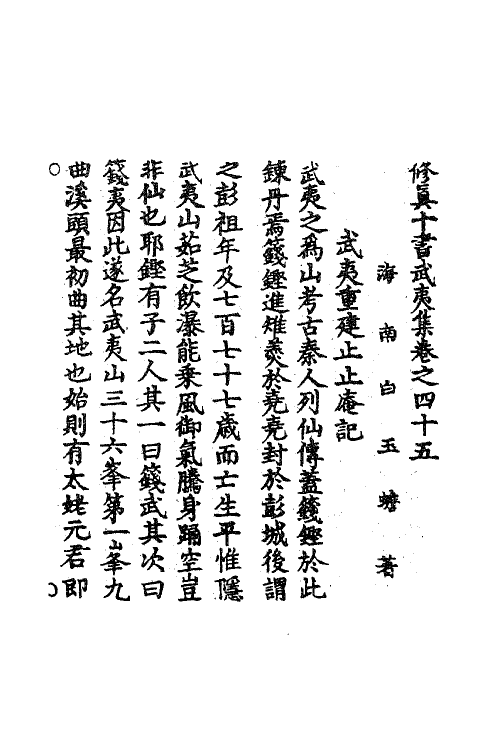 修眞十書武夷集卷之四十五
海南白玉蟾著
武夷重建止止庵記
武夷之爲山考古秦人列仙傳蓋籛鏗於此
鍊丹焉籛鏗進雉羹於堯堯封於彭城後謂
之彭祖年及七百七十七歲而亡生平惟隱
武夷山茹芝飲瀑能乗風御氣騰身踊空豈
非仙也耶鏗有子二人其一曰籛武其次曰
籛夷因此遂名武夷山三十六峯第一峯九
曲溪頭最初曲其地也始則有太姥元君即